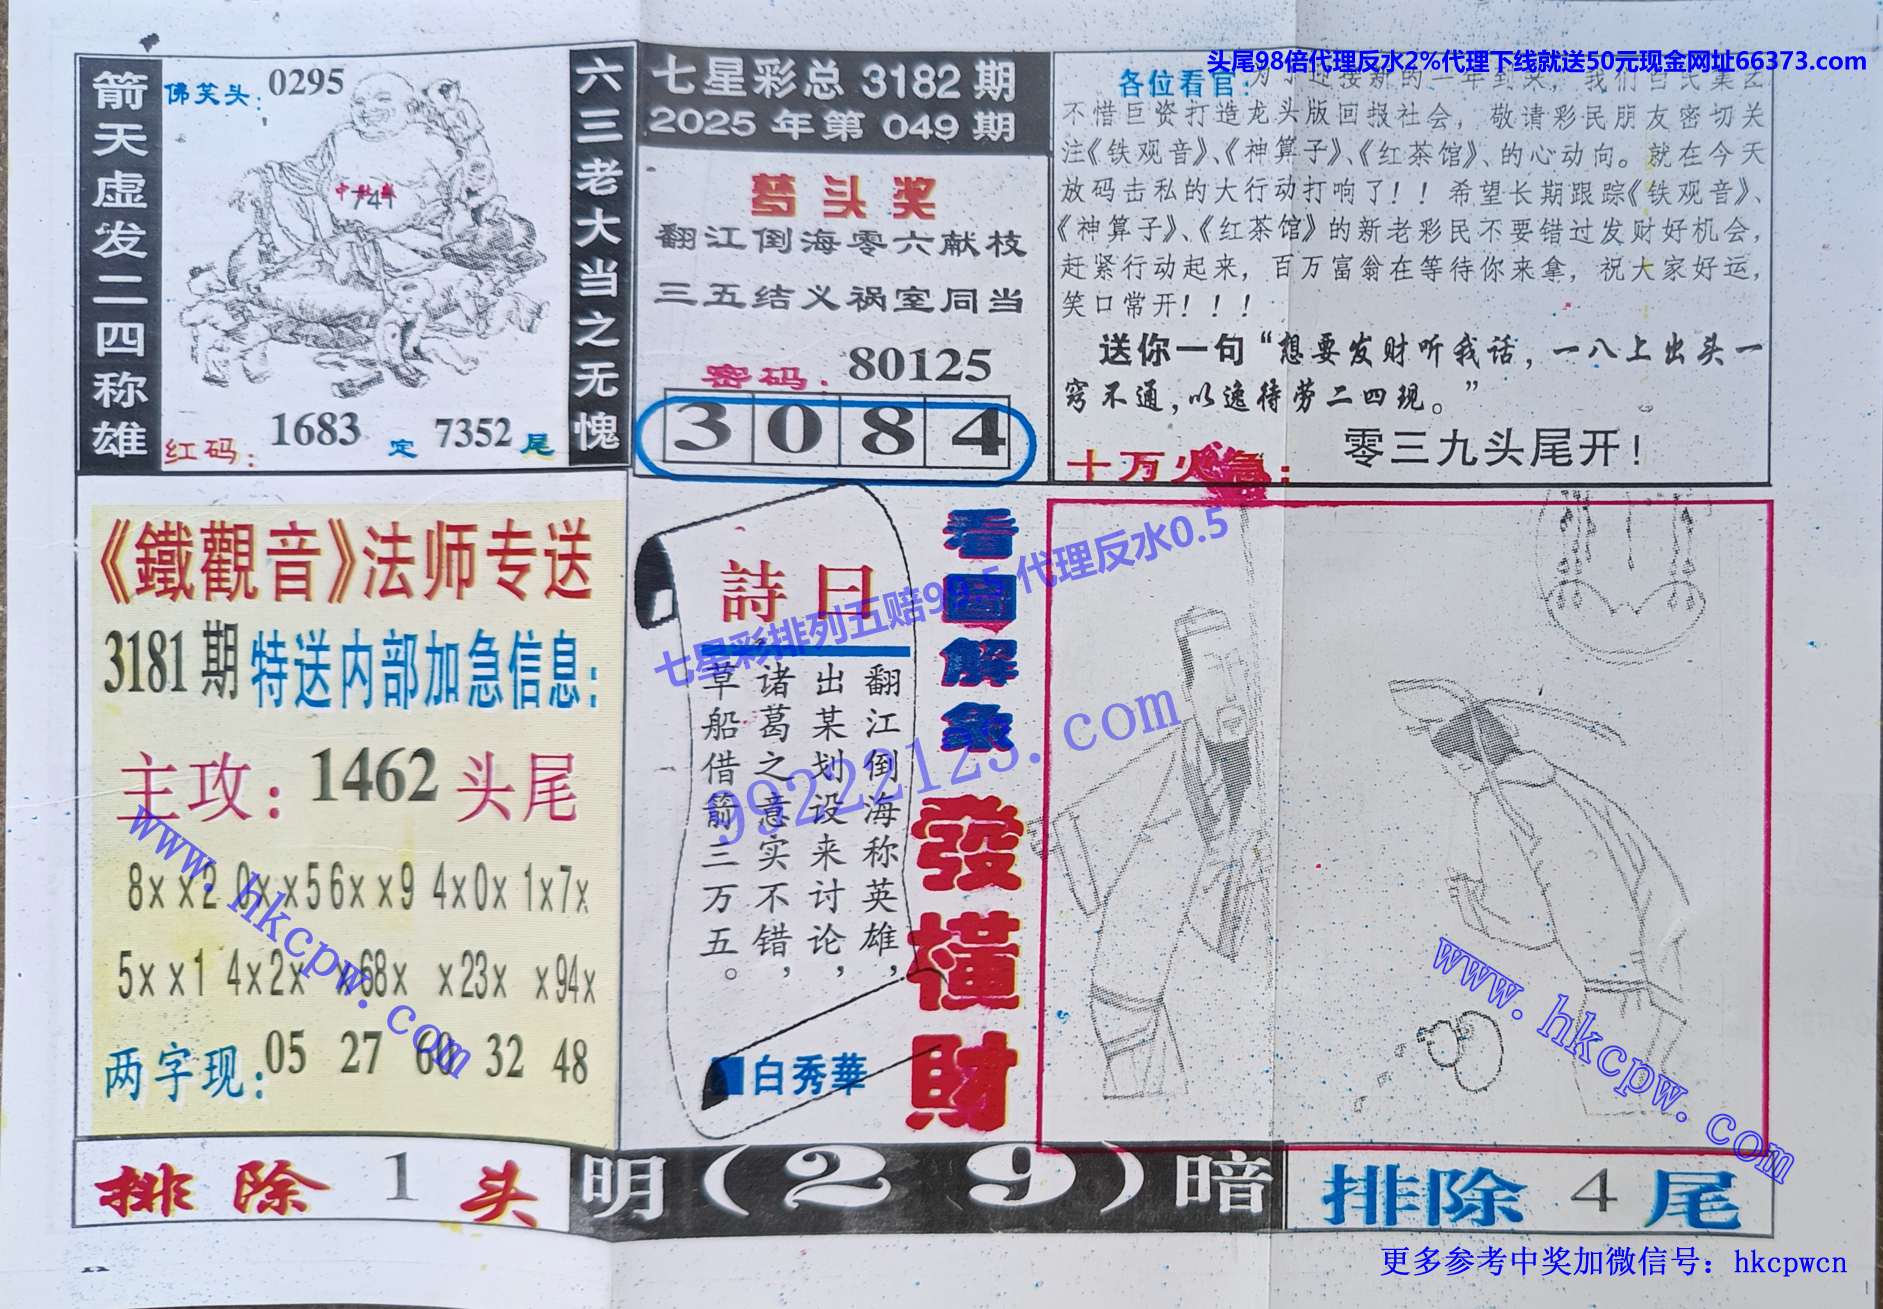 头尾98倍代理反水2%代理下线就送50元现金网址66373.com
箭天虚发二四称雄
佛笑头：0295
741
红码：1683 定 7352 尾
六三老大当之无愧
七星彩总 3182 期
2025 年第 049 期
梦头奖
翻江倒海零六献枝
三五结义祸室同当
密码：80125
3 0 8 4
各位看官：为迎接新的一年到来，我们百民集
不惜巨资打造龙头版回报社会，敬请彩民朋友密切关
注《铁观音》、《神算子》、《红茶馆》、的心动向。就在今天
放码击私的大行动打响了！！希望长期跟踪《铁观音》、
《神算子》、《红茶馆》的新老彩民不要错过发财好机会，
赶紧行动起来，百万富翁在等待你来拿，祝大家好运，
笑口常开！！！
送你一句“想要发财听我话，一八上出头一
窍不通，以逸待劳二四现。”
十万火急：
零三九头尾开！
《鐵觀音》法师专送
3181 期 特送内部加急信息：
主攻：1462 头尾
8xx2 0xx5 6xx9 4x0x 1x7x
5xx1 4x2x x68x x23x x94x
两字现：05 27 60 32 48
詩曰
翻江倒海称英雄，
出某划设来讨论，
诸葛之意实不错，
草船借箭三万五。
白秀華
看图解象
發橫財
七星彩排列五赔99.5 代理反水0.5
99222123.com
www.hkcpw.com
www.hkcpw.com
排除 1 头
明（29）暗
排除 4 尾
更多参考中奖加微信号：hkcpwcn